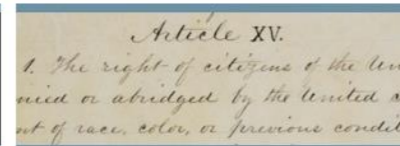 Article XV.
1. The right of citizens of the Un
nied or abridged by the United
nt of race, color, or previous condit